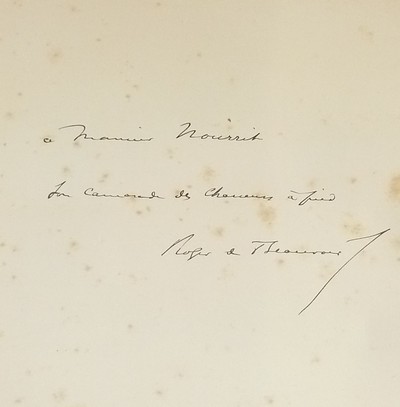 a Monsieur Nourrit
Son camarade des chasseurs à pied
Roger de Beauvoir